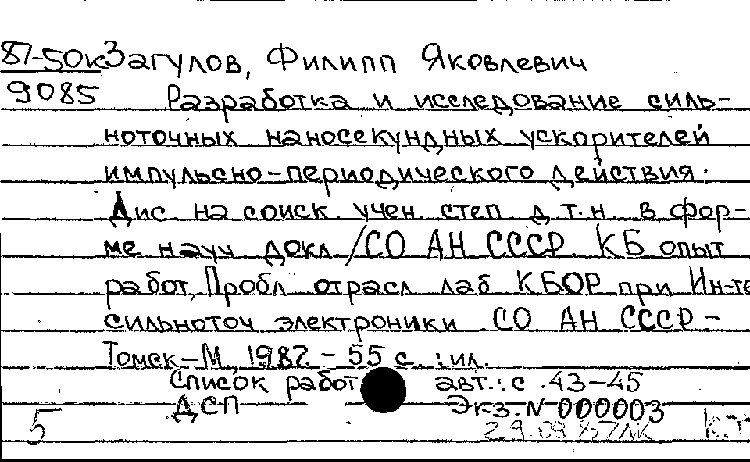 87-50к Загулов, Филипп Яковлевич
9085 Разработка и исследование силь-
ноточных наносекундных ускорителей
импульсно-периодического действия.
Дис. на соиск. учен. степ д.т.н. в фор-
ме науч докл /СО АН СССР КБ опыт
работ, Пробл отрасл лаб КБОР при Ин-те
сильноточ электроники СО АН СССР -
Томск-М, 1987. - 55 с. : ил.
Список работ авт.: с. 43-45
ДСП Экз. N 000003
5 29.09.87